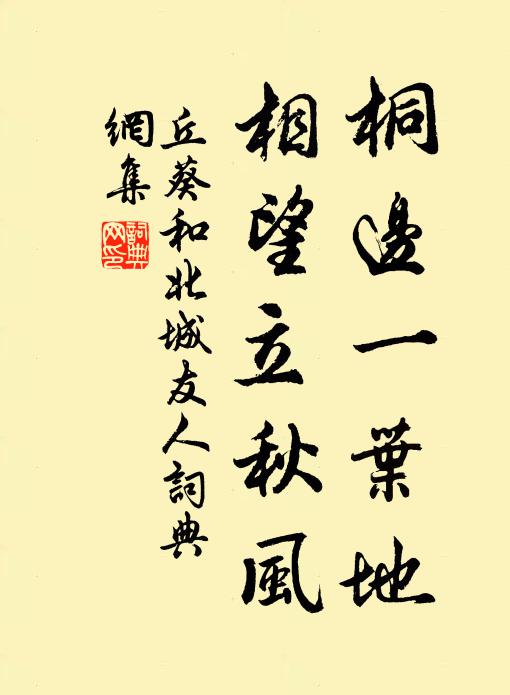 桐邊一葉地
相望立秋風
丘葵和北城友人詞典
網集
詞典
网印